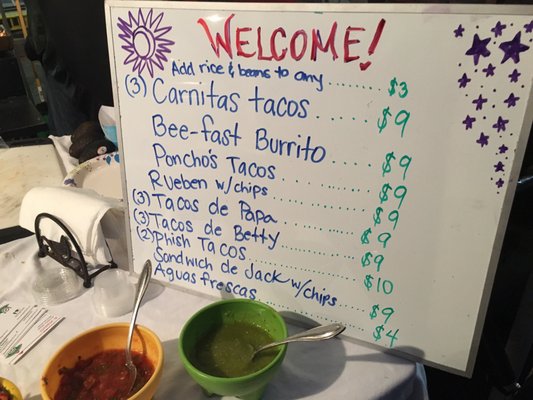 WELCOME!
Add rice & beans to any ....... $3
(3) Carnitas tacos ....... $9
Bee-fast Burrito ....... $9
Poncho's Tacos ....... $9
Rueben w/chips ....... $9
(3) Tacos de Papa ....... $9
(3) Tacos de Betty ....... $9
(2) Phish Tacos ....... $10
Sandwich de Jack w/chips ....... $9
Aguas frescas ....... $4